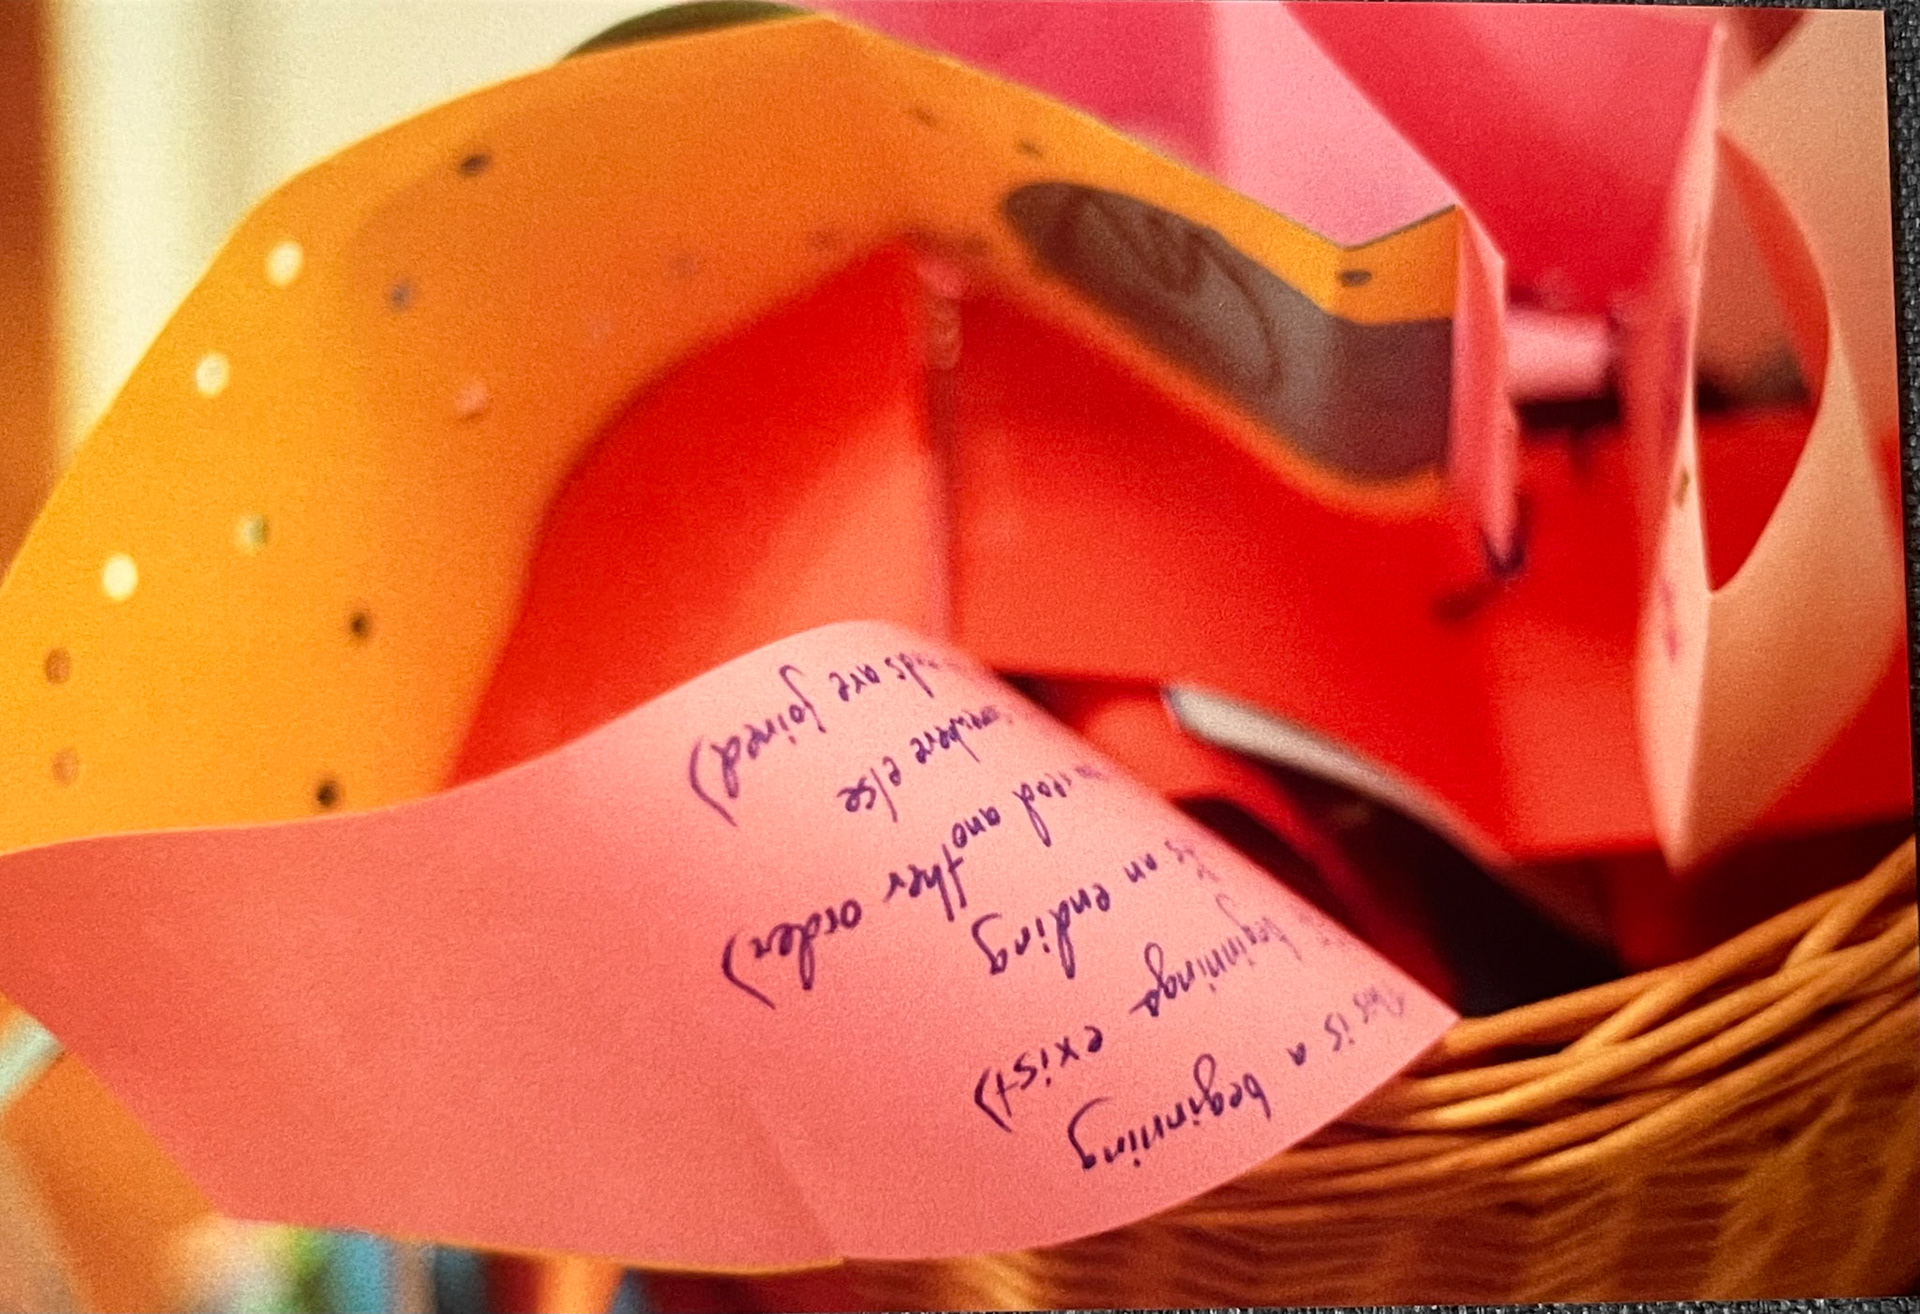 This is a beginning
beginnings exist)
is an ending
another order)
somewhere else
are joined)